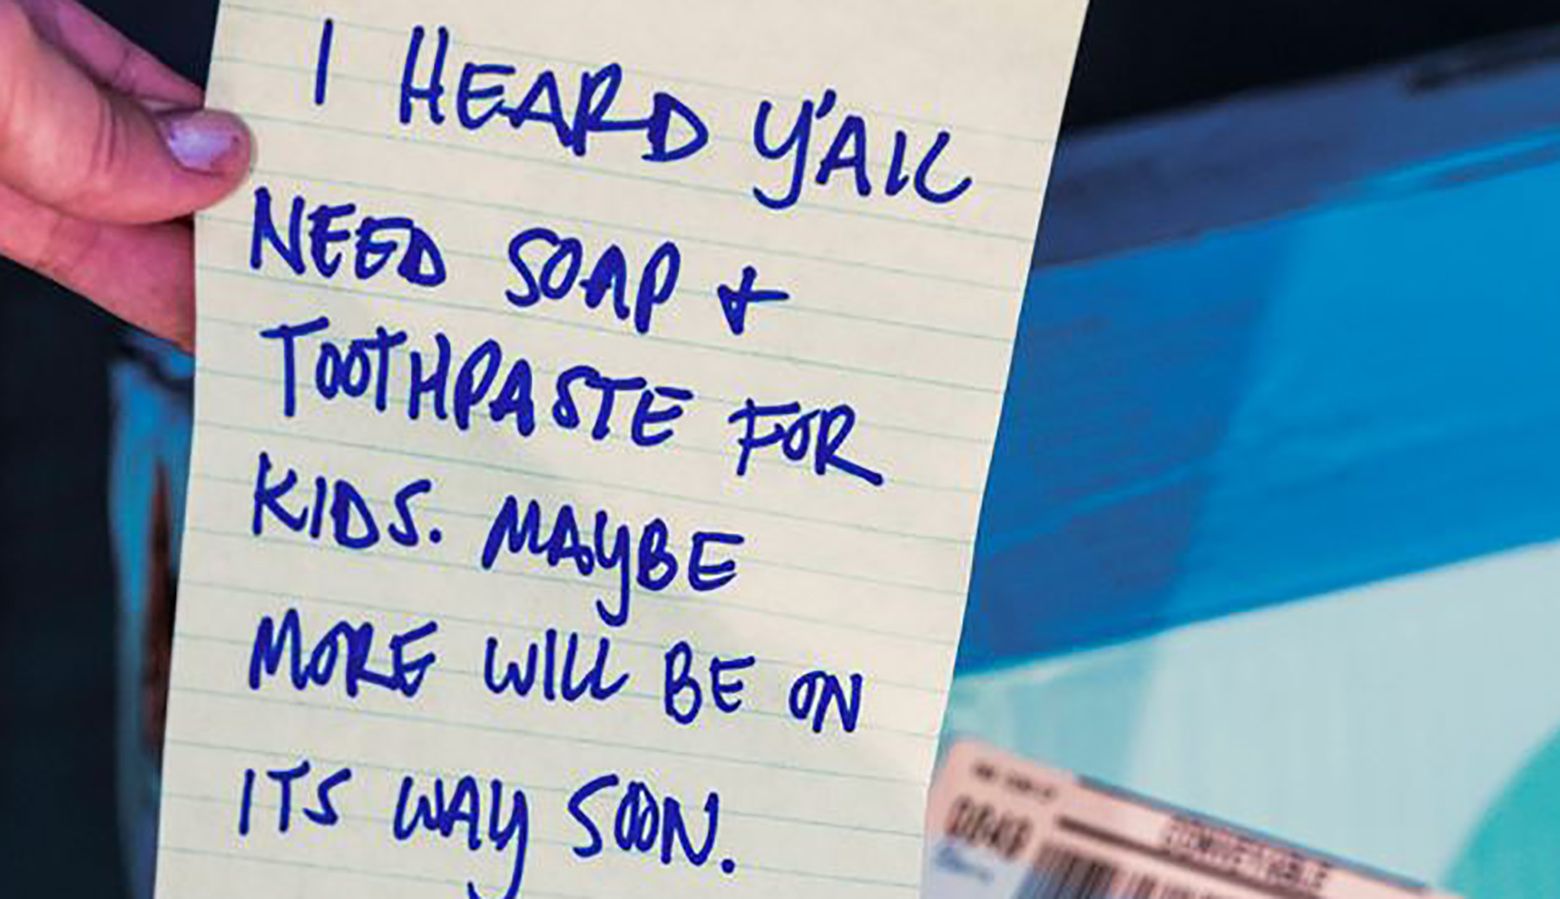 I HEARD Y'ALL
NEED SOAP +
TOOTHPASTE FOR
KIDS. MAYBE
MORE WILL BE ON
ITS WAY SOON.